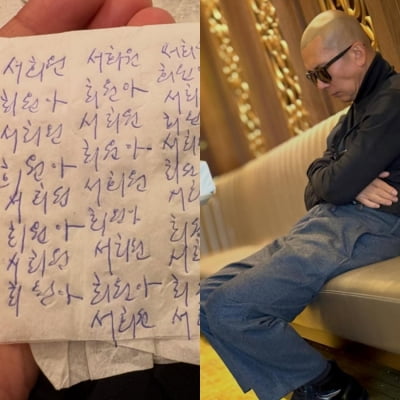 서희원 서희원 서희원
희원아 희원아 희원
서희원 서희원 서희
희원아 희원아 희원
서희원 서희원 서희
희원아 희원아 희원
서희원 서희원 서희
희원아 희원아 희
서희원 서